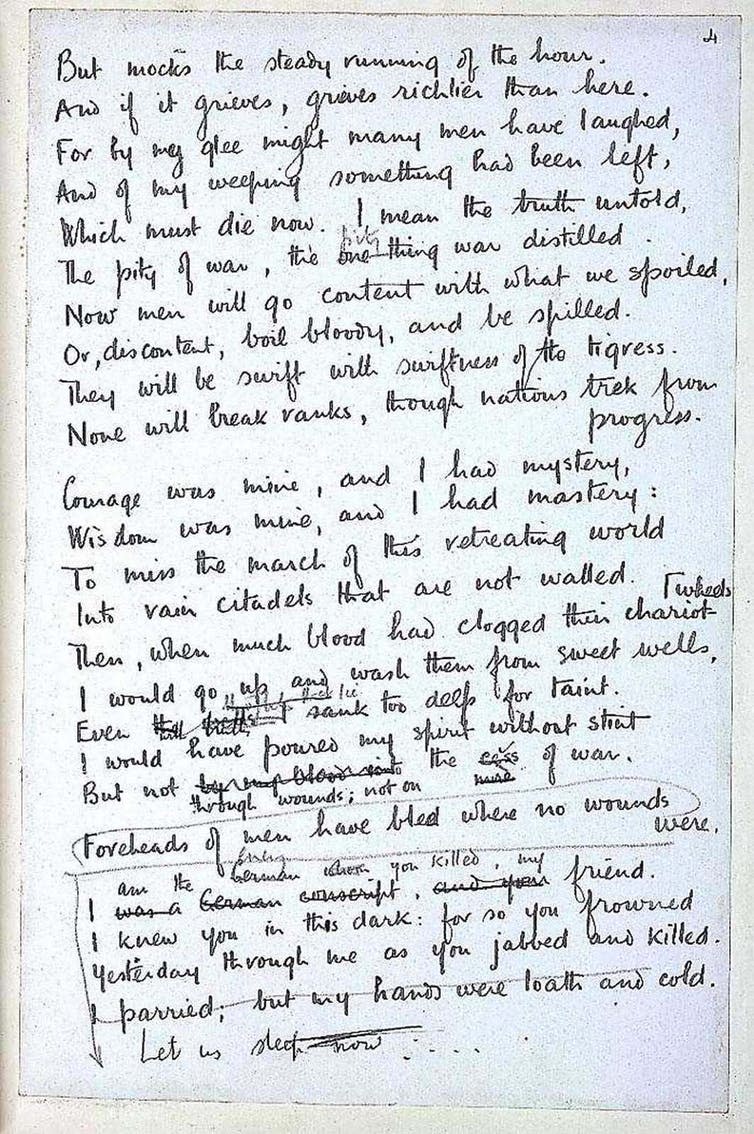 4
But mocks the steady running of the hour.
And if it grieves, grieves richlier than here.
For by my glee might many men have laughed,
And of my weeping something had been left,
Which must die now. I mean the truth untold,
pity
The pity of war, the one thing war distilled.
Now men will go content with what we spoiled,
Or, discontent, boil bloody, and be spilled.
They will be swift with swiftness of the tigress.
None will break ranks, though nations trek from
progress.
Courage was mine, and I had mystery,
Wisdom was mine, and I had mastery:
To miss the march of this retreating world
Into vain citadels that are not walled.
[wheels
Then, when much blood had clogged their chariot-
I would go up and wash them from sweet wells,
Even sank too deep for taint.
I would have poured my spirit without stint
But not by my blood into the cess of war.
through wounds; not on
Foreheads of men have bled where no wounds
were.
enemy
am the German whom you killed, my
I was a German conscript, and your friend.
I knew you in this dark: for so you frowned
Yesterday through me as you jabbed and killed.
I parried; but my hands were loath and cold.
Let us sleep now.....